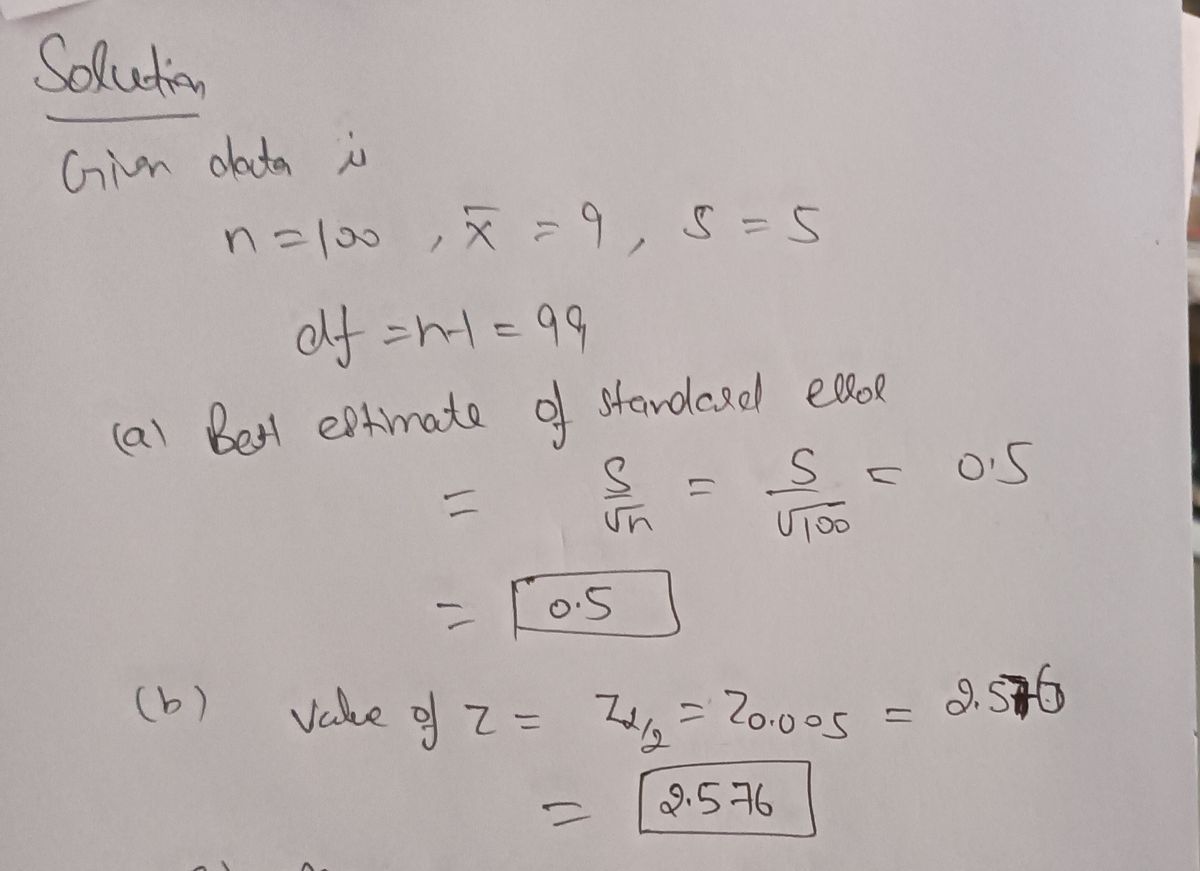 Solution
Given data is
n = 100 , x̄ = 9 , S = 5
df = n-1 = 99
(a) Best estimate of standard error
= S/√n = 5/√100 = 0.5
= 0.5
(b) Value of Z = Zα/2 = Z0.005 = 2.576
= 2.576